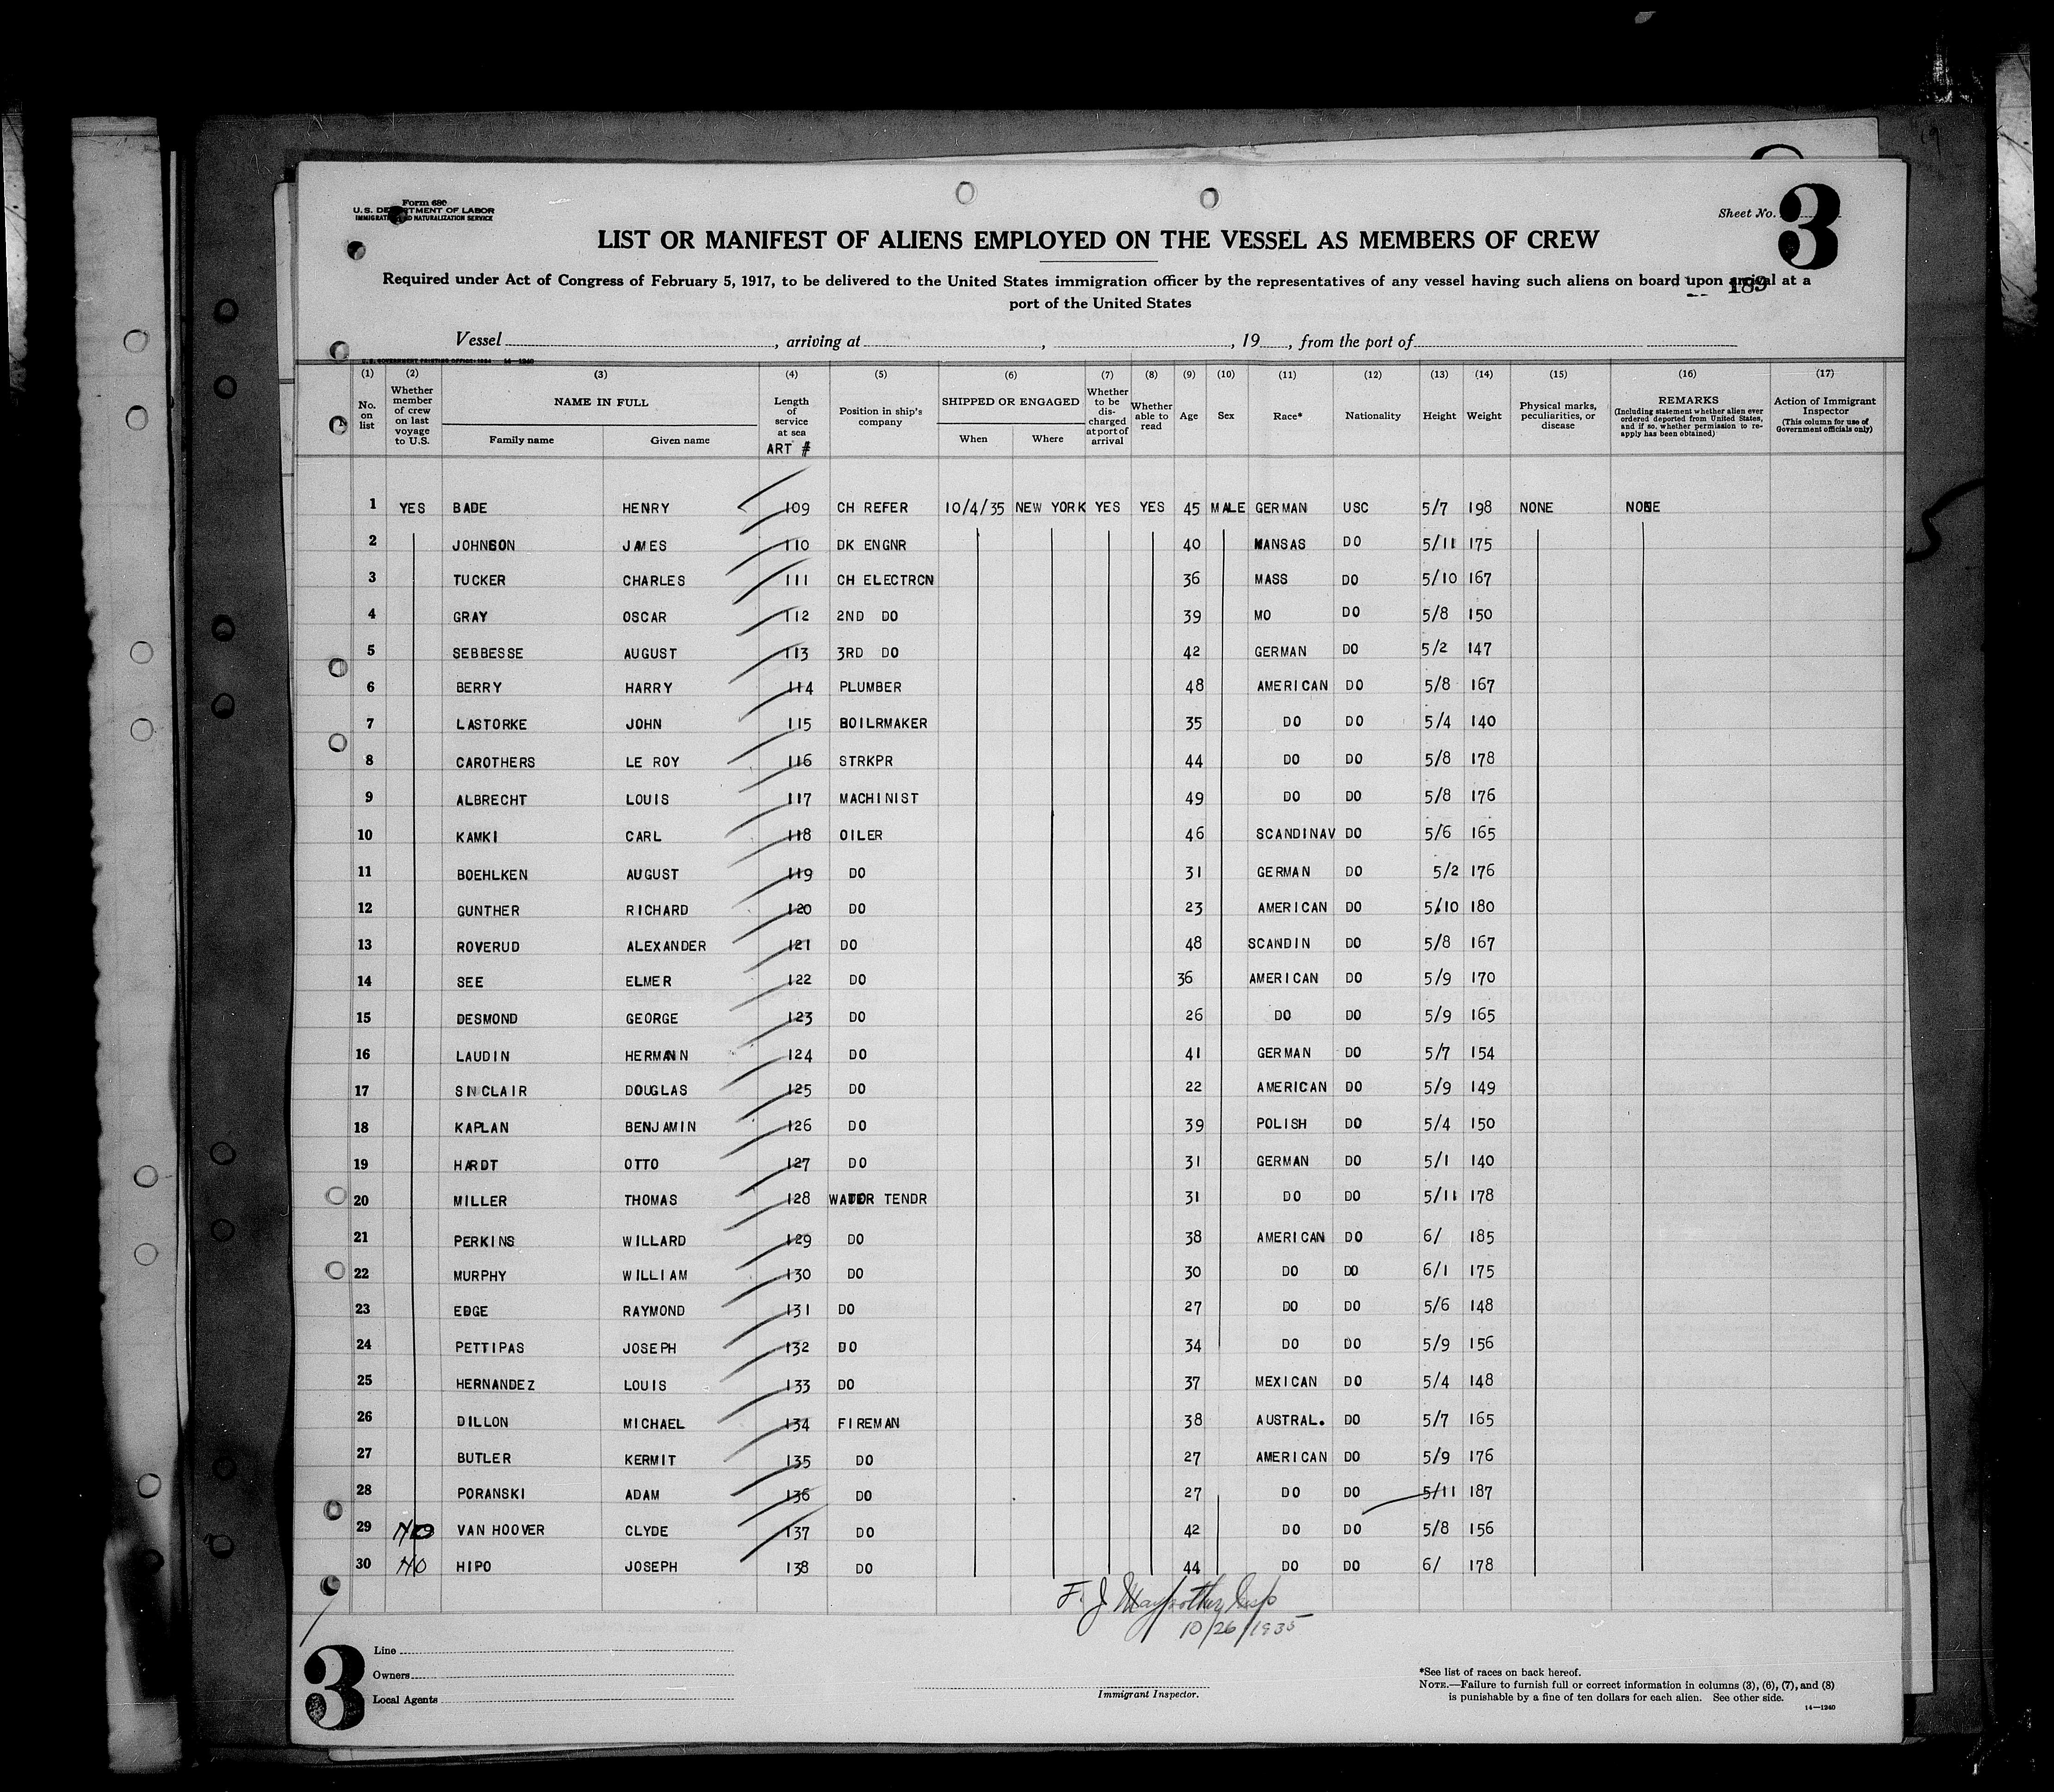 Form 680
U.S. DEPARTMENT OF LABOR
IMMIGRATION AND NATURALIZATION SERVICE
Sheet No. 3
LIST OR MANIFEST OF ALIENS EMPLOYED ON THE VESSEL AS MEMBERS OF CREW
Required under Act of Congress of February 5, 1917, to be delivered to the United States immigration officer by the representatives of any vessel having such aliens on board upon arrival at a
port of the United States
189
Vessel , arriving at , , 19 , from the port of
U.S. GOVERNMENT PRINTING OFFICE: 1934 14-1240
(1) (2) (3) (4) (5) (6) (7) (8) (9) (10) (11) (12) (13) (14) (15) (16) (17)
No. on list Whether member of crew on last voyage to U.S. NAME IN FULL Family name Given name Length of service at sea ART # Position in ship's company SHIPPED OR ENGAGED When Where Whether to be discharged at port of arrival Whether able to read Age Sex Race* Nationality Height Weight Physical marks, peculiarities, or disease REMARKS (Including statement whether alien ever ordered deported from United States, and if so, whether permission to reapply has been obtained) Action of Immigrant Inspector (This column for use of Government officials only)
1 YES BADE HENRY 109 CH REFER 10/4/35 NEW YORK YES YES 45 MALE GERMAN USC 5/7 198 NONE NONE
2 JOHNSON JAMES 110 DK ENGNR 40 KANSAS DO 5/11 175
3 TUCKER CHARLES 111 CH ELECTRCN 36 MASS DO 5/10 167
4 GRAY OSCAR 112 2ND DO 39 MO DO 5/8 150
5 SEBBESSE AUGUST 113 3RD DO 42 GERMAN DO 5/2 147
6 BERRY HARRY 114 PLUMBER 48 AMERICAN DO 5/8 167
7 LASTORKE JOHN 115 BOILRMAKER 35 DO DO 5/4 140
8 CAROTHERS LE ROY 116 STRKPR 44 DO DO 5/8 178
9 ALBRECHT LOUIS 117 MACHINIST 49 DO DO 5/8 176
10 KAMKI CARL 118 OILER 46 SCANDINAV DO 5/6 165
11 BOEHLKEN AUGUST 119 DO 31 GERMAN DO 5/2 176
12 GUNTHER RICHARD 120 DO 23 AMERICAN DO 5/10 180
13 ROVERUD ALEXANDER 121 DO 48 SCANDIN DO 5/8 167
14 SEE ELMER 122 DO 36 AMERICAN DO 5/9 170
15 DESMOND GEORGE 123 DO 26 DO DO 5/9 165
16 LAUDIN HERMANN 124 DO 41 GERMAN DO 5/7 154
17 SINCLAIR DOUGLAS 125 DO 22 AMERICAN DO 5/9 149
18 KAPLAN BENJAMIN 126 DO 39 POLISH DO 5/4 150
19 HARDT OTTO 127 DO 31 GERMAN DO 5/1 140
20 MILLER THOMAS 128 WATER TENDR 31 DO DO 5/11 178
21 PERKINS WILLARD 129 DO 38 AMERICAN DO 6/ 185
22 MURPHY WILLIAM 130 DO 30 DO DO 6/1 175
23 EDGE RAYMOND 131 DO 27 DO DO 5/6 148
24 PETTIPAS JOSEPH 132 DO 34 DO DO 5/9 156
25 HERNANDEZ LOUIS 133 DO 37 MEXICAN DO 5/4 148
26 DILLON MICHAEL 134 FIREMAN 38 AUSTRAL. DO 5/7 165
27 BUTLER KERMIT 135 DO 27 AMERICAN DO 5/9 176
28 PORANSKI ADAM 136 DO 27 DO DO 5/11 187
29 NO VAN HOOVER CLYDE 137 DO 42 DO DO 5/8 156
30 NO HIPO JOSEPH 138 DO 44 DO DO 6/ 178
F. J.
10/26/1935
3
Line
Owners
Local Agents
Immigrant Inspector.
*See list of races on back hereof.
NOTE.—Failure to furnish full or correct information in columns (3), (6), (7), and (8)
is punishable by a fine of ten dollars for each alien. See other side.
14—1240